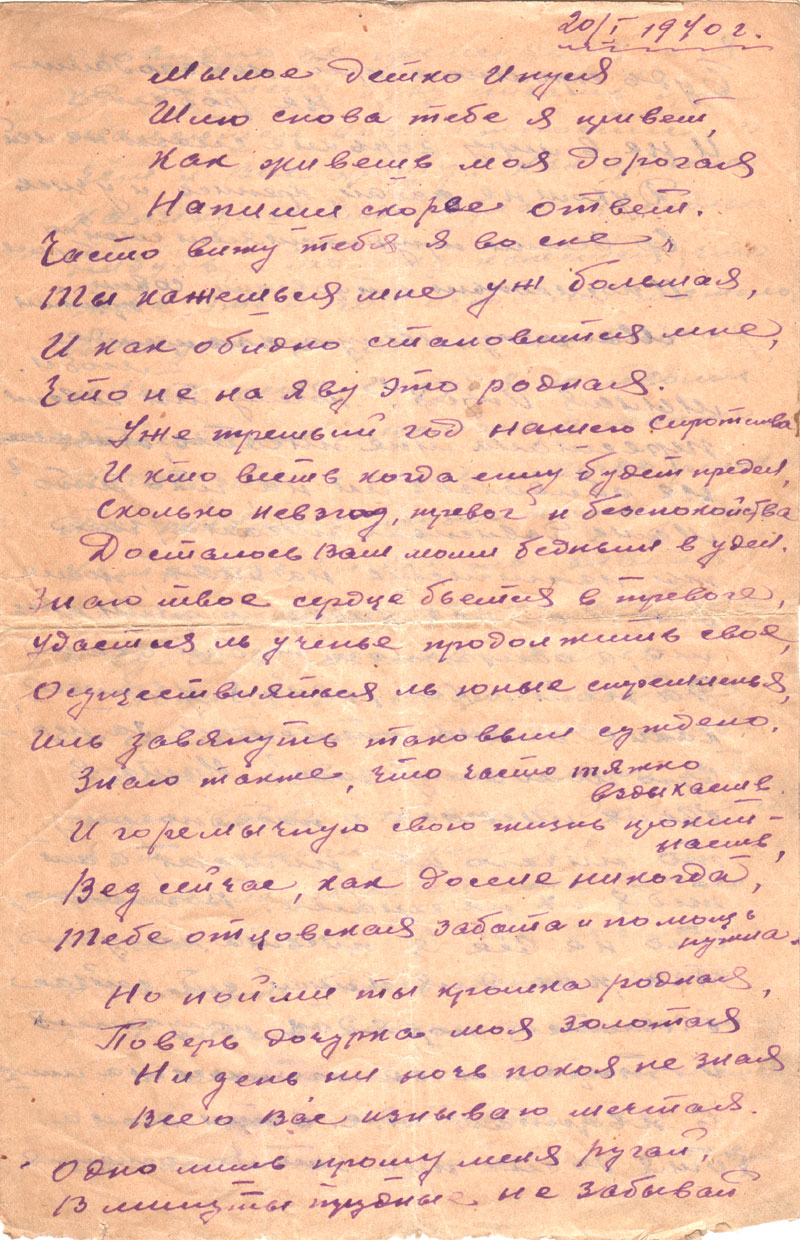 20/I 1940 г.
Милое детко Инуся
Шлю снова тебе я привет,
Как живешь моя дорогая
Напиши скорее ответ.
Часто вижу тебя я во сне,
Ты кажешься мне уж большая,
И как обидно становится мне,
Что не на яву это родная.
Уже третий год нашего сиротства
И кто весть когда ему будет предел,
Сколько невзгод, тревог и беспокойства
Досталось Вам моим бедным в удел.
Знаю твое сердце бьется в тревоге,
Удастся ль ученье продолжить свое,
Осуществляться ль юные стремленья,
Иль завянуть таковым суждено.
Знаю также, что часто тяжко
вздыхаешь
И горемычную свою жизнь
Вед сейчас, как доселе никогда,
Тебе отцовская забота и помощь
нужна.
Но пойми ты крошка родная,
Поверь дочурка моя золотая
Ни день ни ночь покоя не зная
Все о Вас изнываю мечтая.
Одно лишь прошу меня ругай,
В минуты трудные не забывай